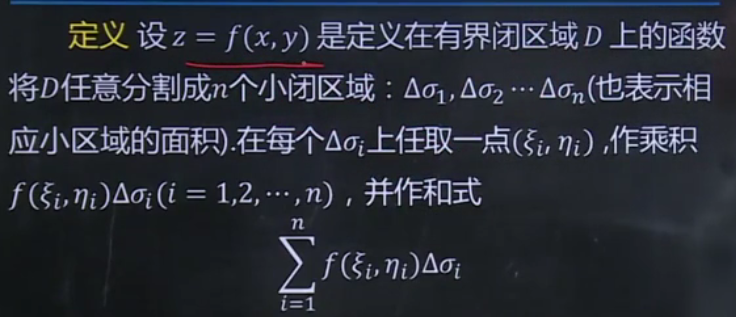 定义 设 z = f(x, y) 是定义在有界闭区域 D 上的函数
将D任意分割成n个小闭区域：Δσ₁, Δσ₂ ⋯ Δσₙ(也表示相
应小区域的面积).在每个Δσᵢ上任取一点(ξᵢ, ηᵢ) ,作乘积
f(ξᵢ, ηᵢ)Δσᵢ(i = 1,2, ⋯, n)，并作和式
n
∑ f(ξᵢ, ηᵢ)Δσᵢ
i=1